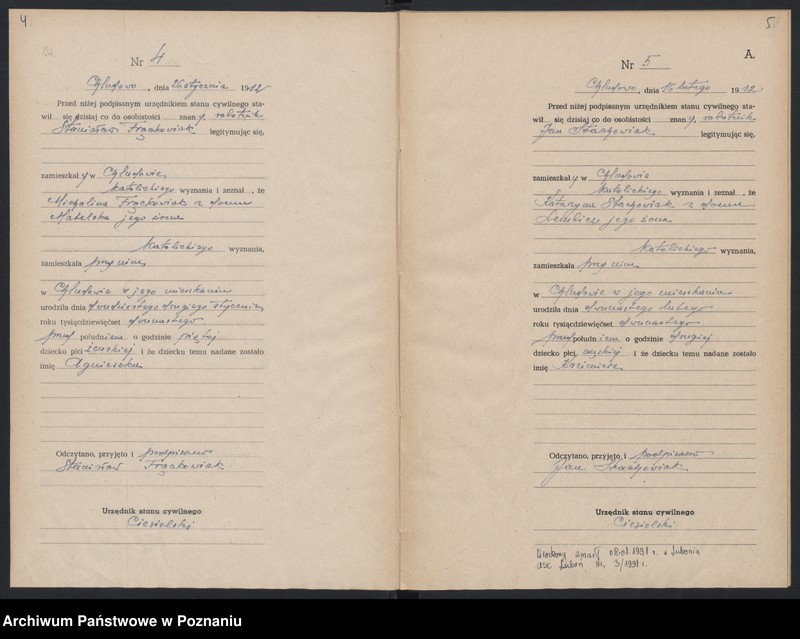 4.
Nr 4
Chludowo, dnia 26 stycznia 1912
Przed niżej podpisanym urzędnikiem stanu cywilnego sta-
wił się dzisiaj co do osobistości znany, robotnik
Stanisław Frąckowiak legitymując się,
zamieszkały w Chludowie,
katolickiego wyznania i zeznał, że
Michalina Frąckowiak z domu
Matelska jego żona
katolickiego wyznania,
zamieszkała przy nim,
w Chludowie w jego mieszkaniu
urodziła dnia dwudziestego drugiego stycznia
roku tysiącdziewięćset dwunastego
przed południem o godzinie piątej
dziecko płci żeńskiej i że dziecku temu nadane zostało
imię Agnieszka
Odczytano, przyjęto i podpisano
Stanisław Frąckowiak
Urzędnik stanu cywilnego
Ciesielski
5.
A.
Nr 5
Chludowo, dnia 16 lutego 1912
Przed niżej podpisanym urzędnikiem stanu cywilnego sta-
wił się dzisiaj co do osobistości znany, robotnik
Jan legitymując się,
zamieszkały w Chludowie
katolickiego wyznania i zeznał, że
Katarzyna z domu
jego żona
katolickiego wyznania,
zamieszkała przy nim
w Chludowie w jego mieszkaniu
urodziła dnia dwunastego lutego
roku tysiącdziewięćset dwunastego
przed południem o godzinie drugiej
dziecko płci męskiej i że dziecku temu nadane zostało
imię Kazimierz
Odczytano, przyjęto i podpisano
Jan
Urzędnik stanu cywilnego
Ciesielski
Urodzony zmarł 08.01.1991 r. w Luboniu
USC Luboń Nr. 3/1991 r.
Archiwum Państwowe w Poznaniu